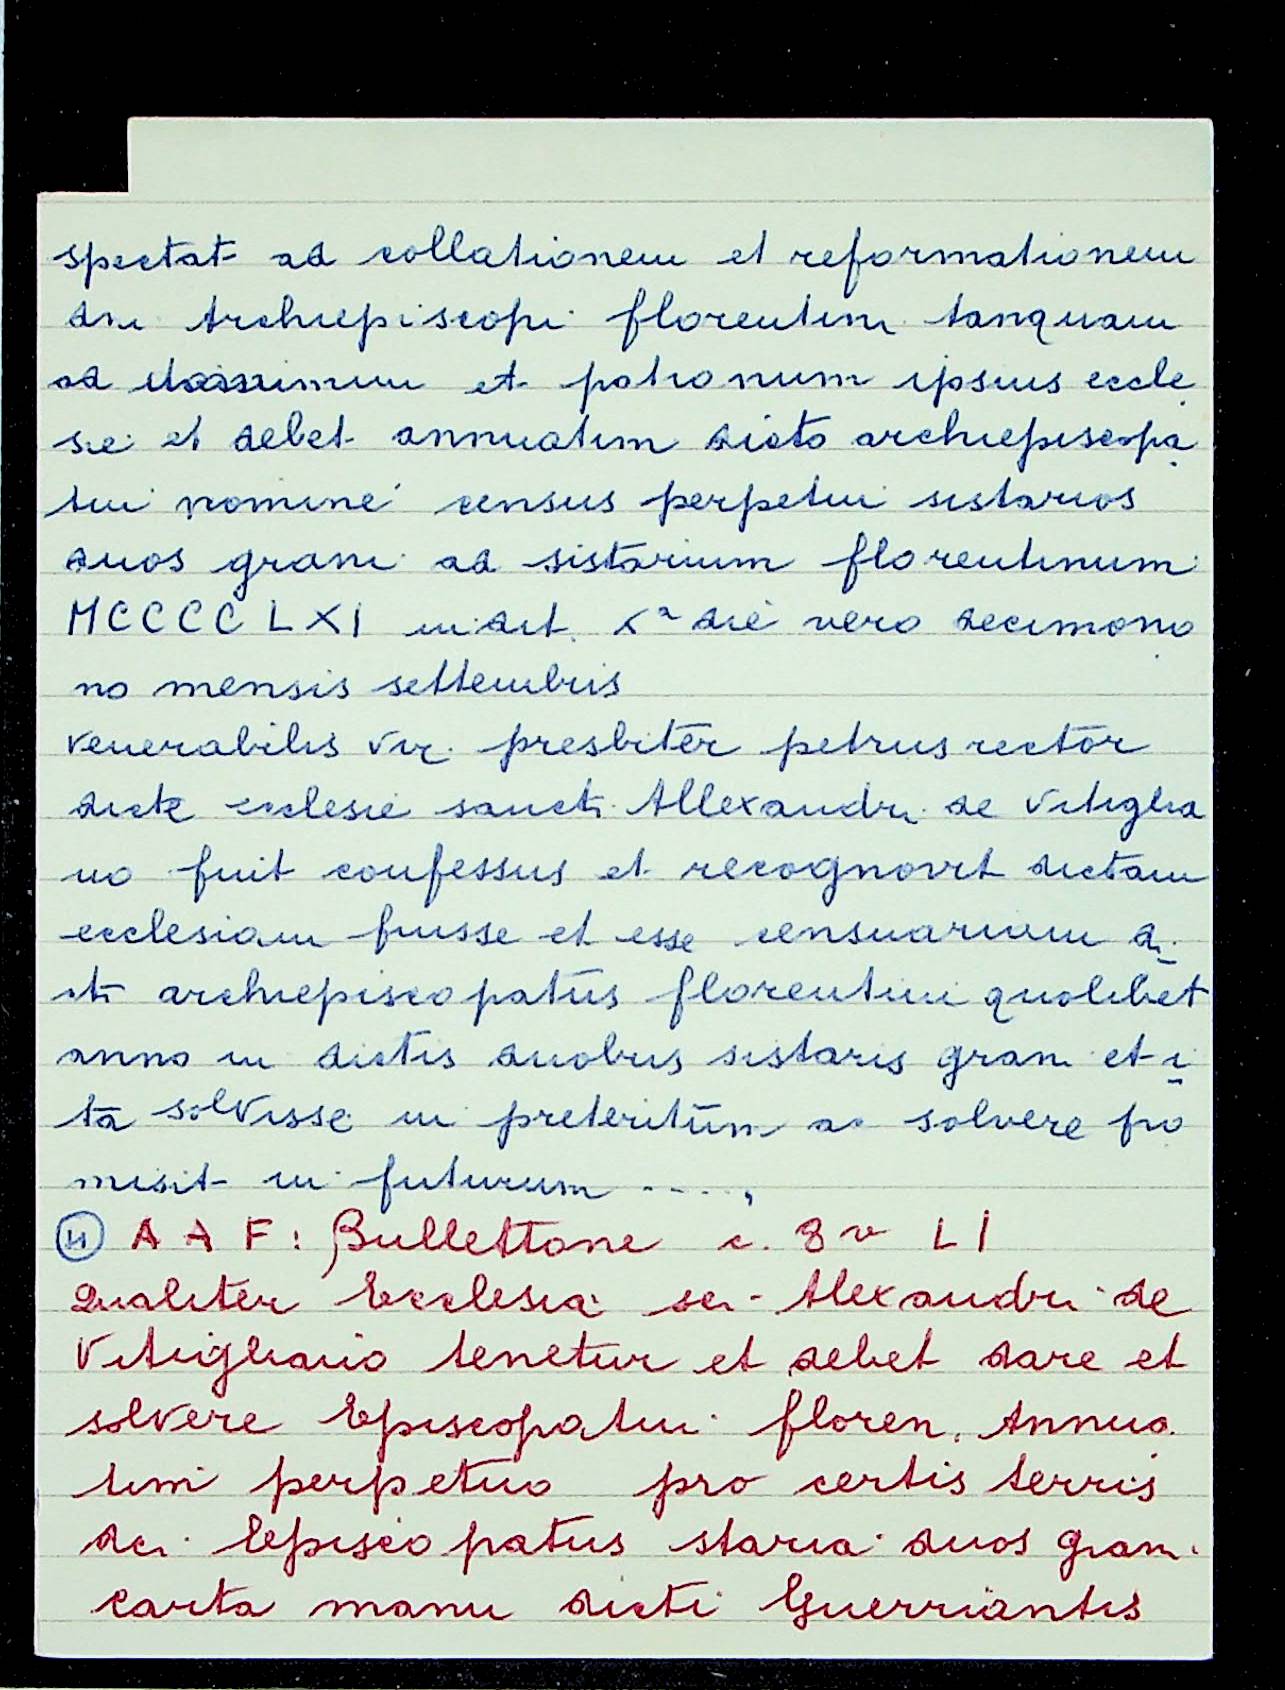 spectat ad collationem et reformationem
dni Archiepiscopi florentini tanquam
ad et patronum ipsius eccle
sie et debet annuatim dicto archiepiscopa
tui nomine census perpetui sistarios
duos grani ad sistarium florentinum
MCCCCLXI indit. Xa die vero decimono
no mensis settembris
venerabilis vir presbiter petrus rector
dicte ecclesie sancti Allexandri de Vitiglia
no fuit confessus et recognovit dictam
ecclesiam fuisse et esse censuariam di
cti archiepiscopatus florentini quolibet
anno in dictis duobus sistaris grani et i
ta solvisse in preteritum ac solvere pro
misit in futurum .....,
AAF: Bullettone c. 8v LI
Qualiter Ecclesia sci Alexandri de
Vitigliano tenetur et debet dare et
solvere Episcopatui floren. Annua
tim perpetuo pro certis terris
dci Episcopatus staria duos gran.
carta manu dicti Guerriantis